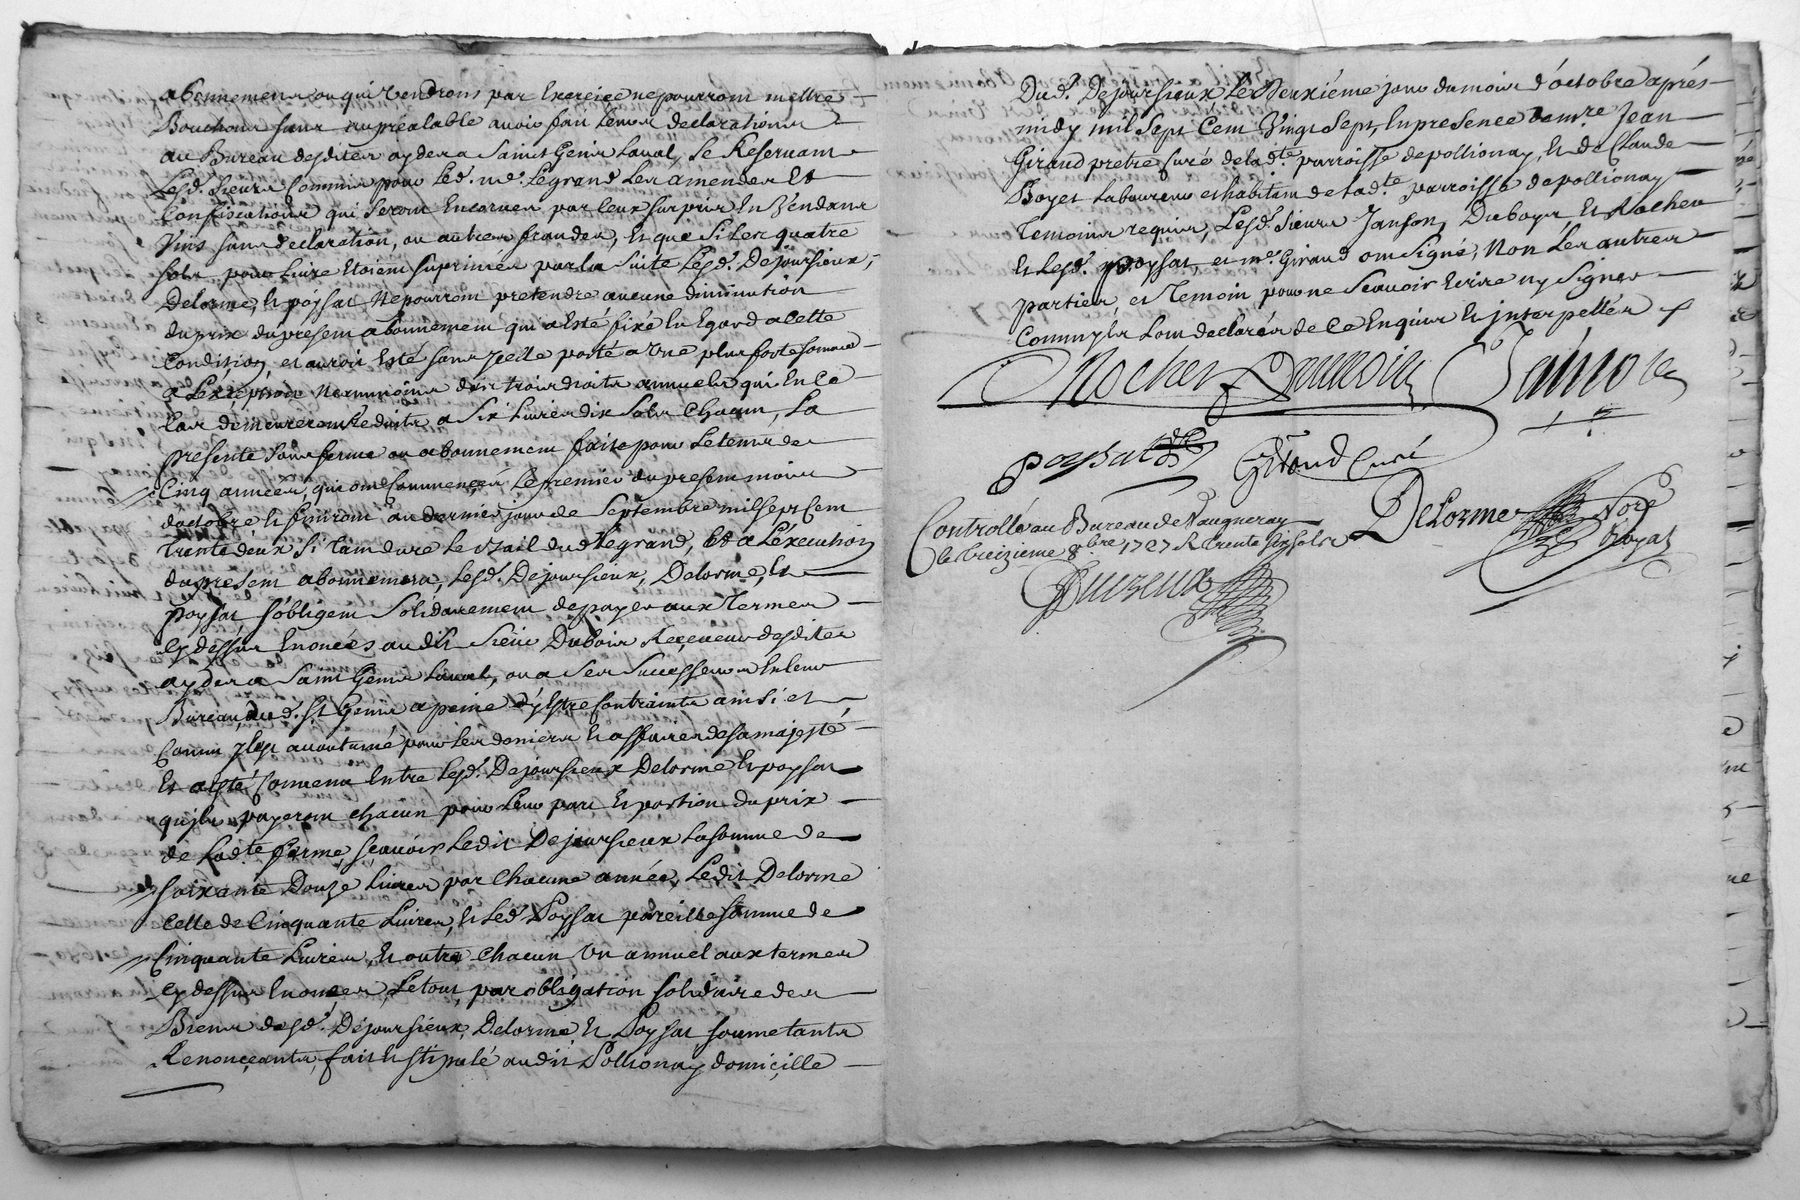 abonnement ou qui vendrons par Exercice ne pourront mettre
Bouchons sans aupréalable avoir fait leurs declarations
au Bureau desdites aydes a Saint Genis Laval, se Reservant
Lesd. sieurs Commis pour Led. me. Legrand Les amendes Et
Confiscations qui seront Encorues par Ceux surpris En Vendans
Vins sans declaration, ou autres fraudes, Et que si Les quatre
sols pour Livre Etoient suprimés par la suite Lesd. Dejoursieux,
Delorme, Et poysat Ne pourront pretendre aucune diminution
du prix du present abonnement qui a Esté fixé En Egard a Cette
Condition, et auroit Esté sans jcelle porté a Une plus forte somme
a L'exception Neanmoins des trois droits annuels qui En Ce
Cas demeureront Reduits a Six Livres dix sols Chacun, La
presente sous ferme ou abonnement faite pour Le tems de
Cinq années, qui ont Commencées Le premier du present mois
d'octobre Et finiront au dernier jour de Septembre mil sept Cent
Trente deux si Tant dure Le Bail dud Legrand, Et a L'execution
du present abonnement, Lesd. Dejoursieux, Delorme, Et
poysat s'obligent Solidairement de payer aux Termes
Cy dessus Enoncés audit Sieur Dubois Receveur desdites
aydes a Saint Genis Laval, ou a Ses Successeurs En leur
Bureau, dud. St Genis a peine d'y Estre Contraints ainsi et
Comm' jl est accoutumé pour Les deniers Et affaires de sa majesté
Et a Esté Convenu Entre Lesd. Dejoursieux Delorme Et poysat
qu'jls payeront chacun pour Leur part Et portion du prix
de Ladte ferme, scavoir Ledit Dejoursieux La somme de
soixante Douze Livres par Chacune année, Ledit Delorme
Celle de Cinquante Livres, Et Led Poysat pareille somme de
Cinquante Livres, En outre Chacun Un annuel aux termes
Cy dessus Enoncés, Le tout par obligation solidaire des
Biens desd. Dejoursieux, Delorme, Et Poysat soumetants
Renonçeants, fait Et stipulé audit Pollionay domicille
Dud. Dejoursieux Le Deuxiéme jour du mois d'octobre aprés
midy mil Sept Cent Vingt Sept, En presence de mre Jean
Giraud pretre Curé de lad.te parroisse de pollionay, Et de Claude
Boyet Laboureur et habitant de Lad.te parroisse de pollionay
Temoins requis, Lesd. Sieurs Janson, Duboys, Et Rocher
Et Lesd. poysat, et mre. Giraud ont signé, Non Les autres
parties et Temoin pour ne Scavoir Ecrire ny Signer
Comm'jls L'ont declaré de Ce Enquis Et jnterpellés
Rocher
poysat Giraud Curé
DeLorme Nore Royal
Controllé au Bureau de Vaugneray
le treizieme 8bre 1727 R Trente six sols